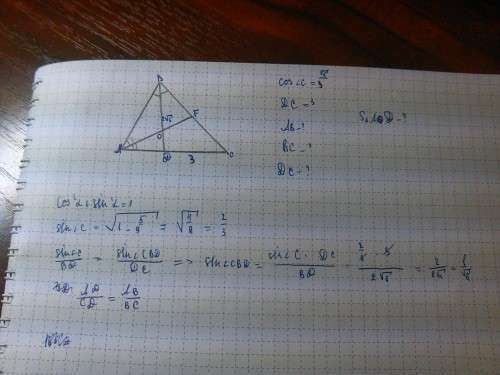 B
2√5
F
O
A
D
3
C
cos∠C = √5/3
DC = 3
AB - ?
BC - ?
DC - ?
S AOD - ?
cos²∠ + sin²∠ = 1
sin∠C = √(1 - 5/9) = √(4/9) = 2/3
sin∠C/BD = sin∠CBD/DC => sin∠CBD = sin∠C · DC/BD = 2/3 · 3/2√5 = 2/2√5 = 1/√5
AD/CD = AB/BC